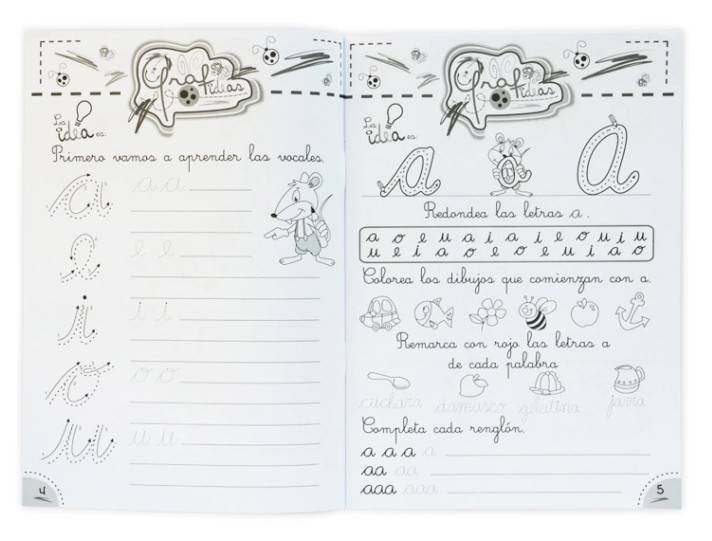 La idea es:
Primero vamos a aprender las vocales.
a a a
e e e
i i i
o o o
u u u
4
La idea es:
a a
Redondea las letras a.
a o e u a i a i e o u i u
u e i a o e o e u i a o
Colorea los dibujos que comienzan con a.
Remarca con rojo las letras a
de cada palabra
cuchara damasco gelatina jarra
Completa cada renglón.
a a a a
aa aa
aaa aaa
5